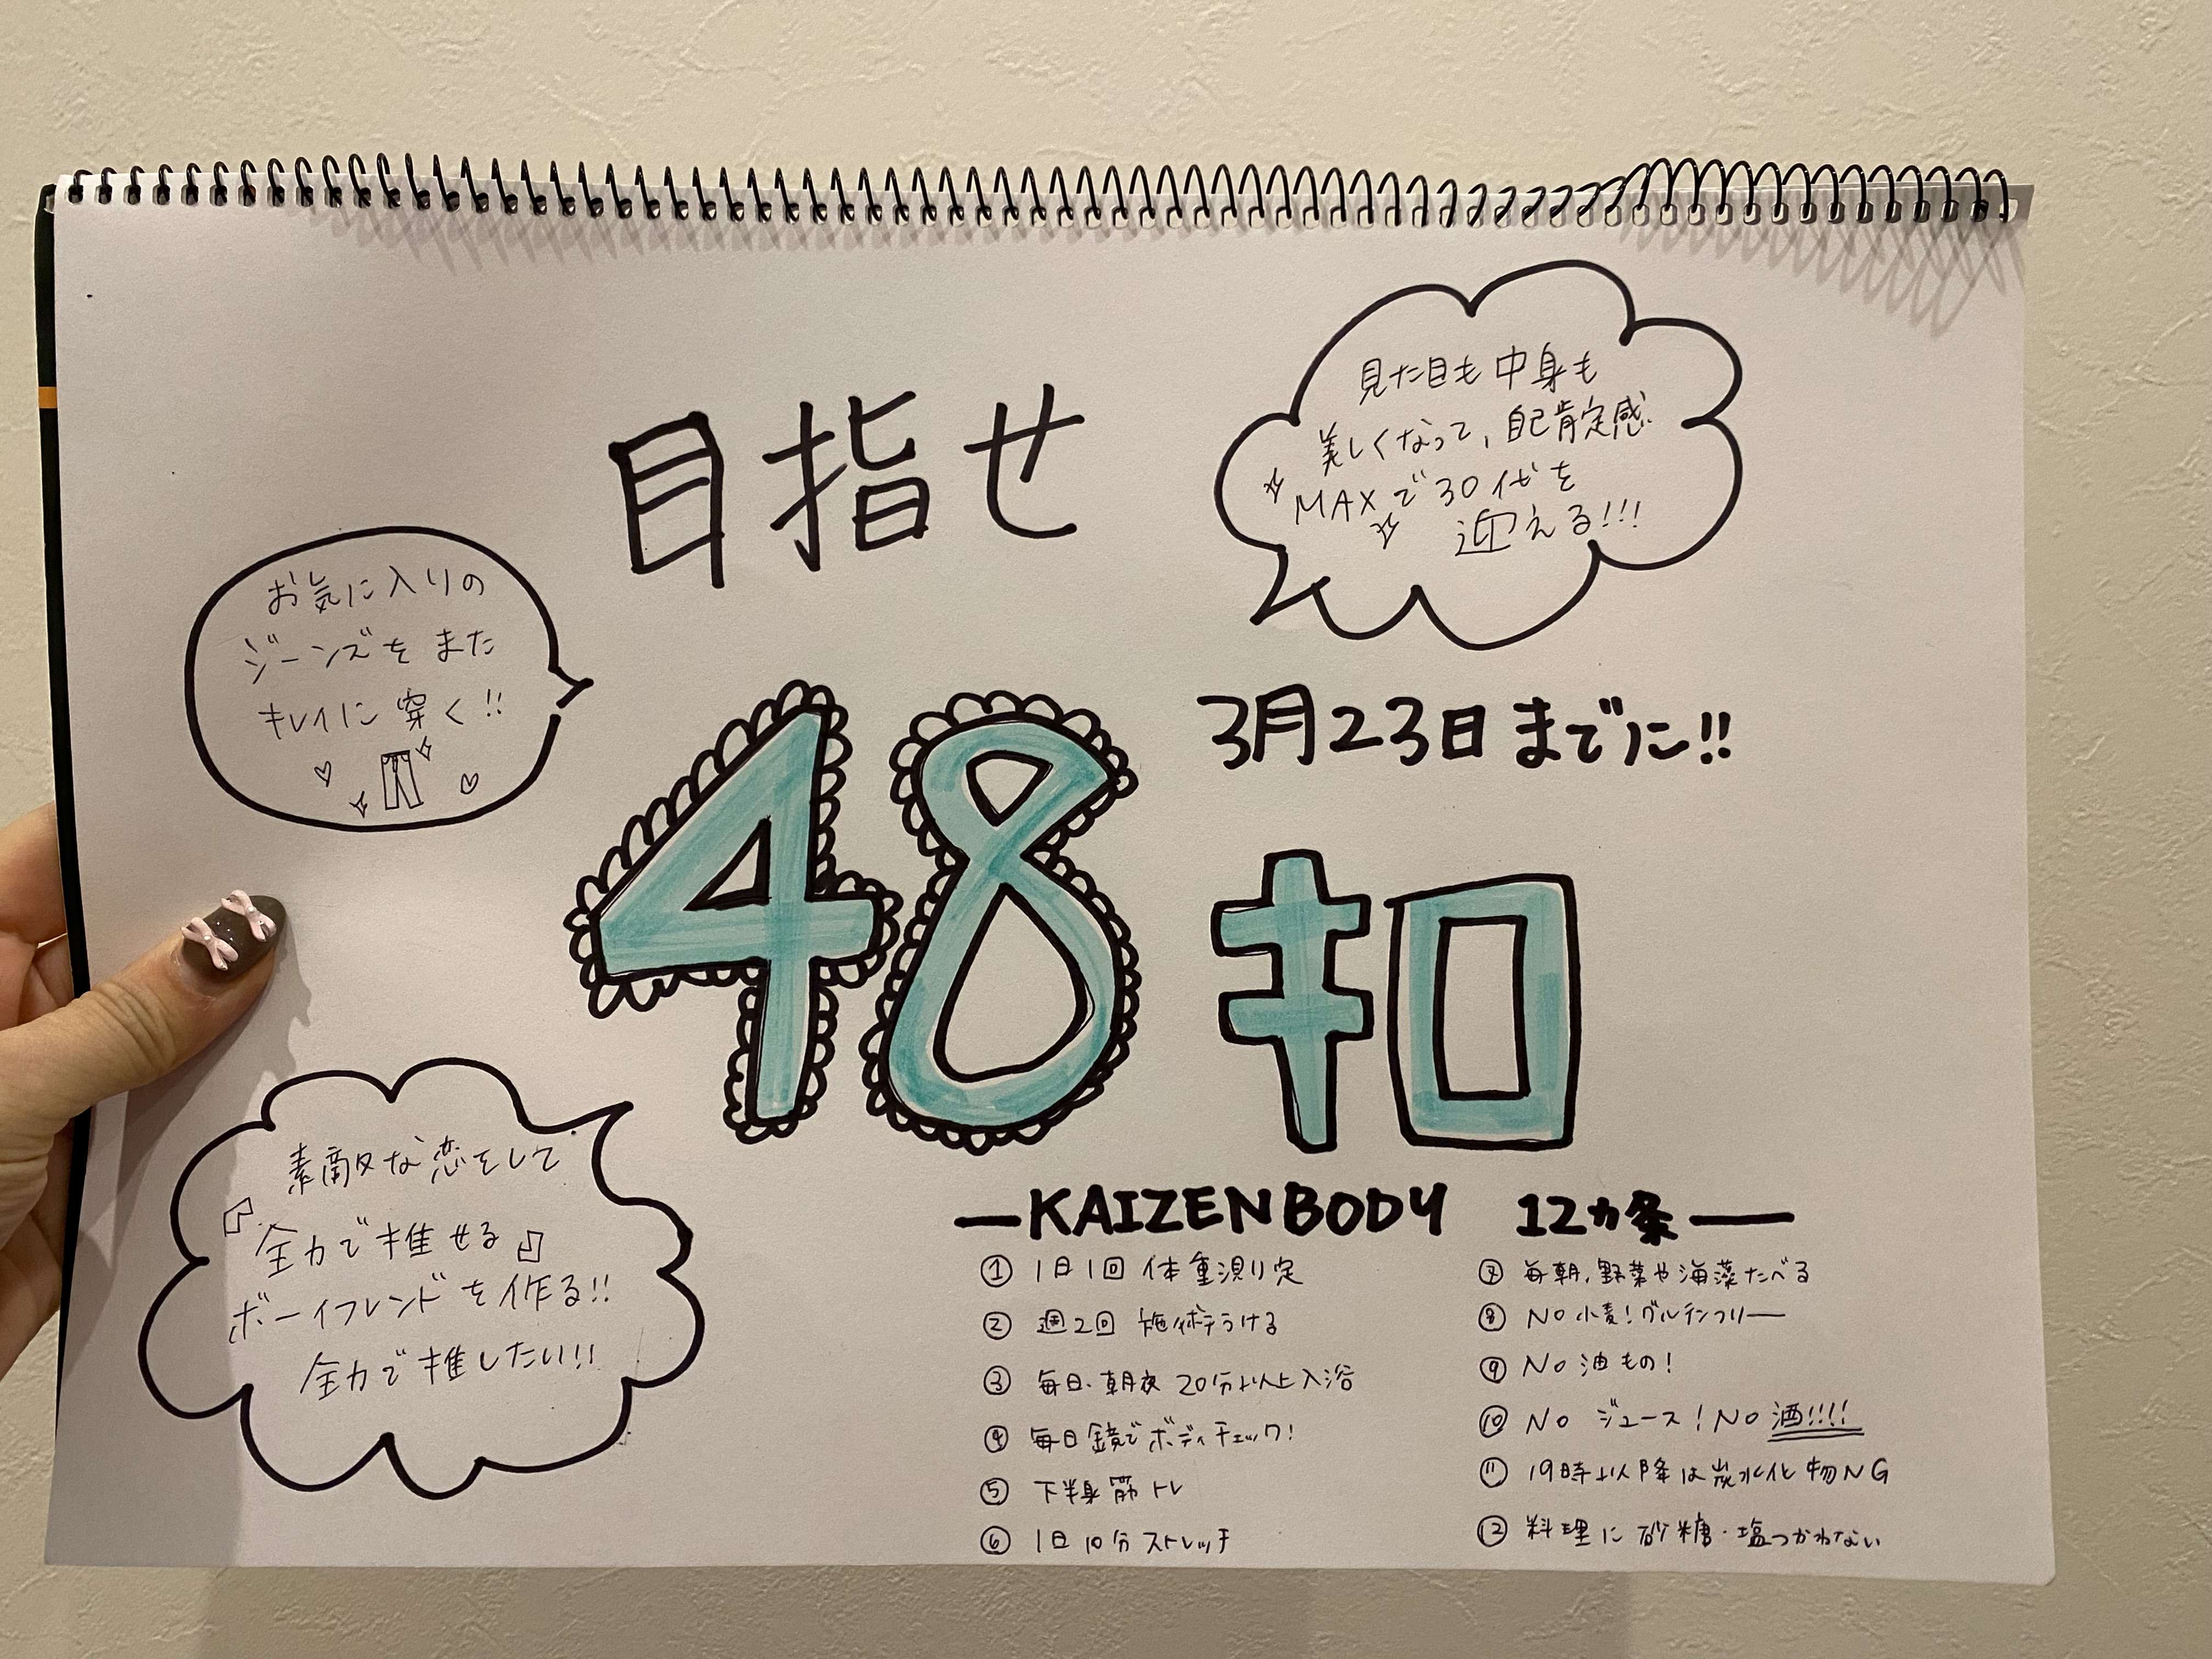 目指せ
見た目も中身も
美しくなって、自己肯定感
MAXで30代を
迎える!!!
お気に入りの
ジーンズをまた
キレイに穿く!!
3月23日までに!!
48キロ
素敵な恋をして
『全力で推せる』
ボーイフレンドを作る!!
全力で推したい!!
—KAIZEN BODY 12カ条—
① 1日1回 体重測り定
② 週2回 施術うける
③ 毎日・朝夜 20分以上入浴
④ 毎日鏡でボディチェック!
⑤ 下半身筋トレ
⑥ 1日10分ストレッチ
⑦ 毎朝、野菜や海藻たべる
⑧ NO 小麦!グルテンフリー
⑨ NO 油もの!
⑩ NO ジュース!NO 酒!!!!
⑪ 19時以降は炭水化物NG
⑫ 料理に砂糖・塩つかわない